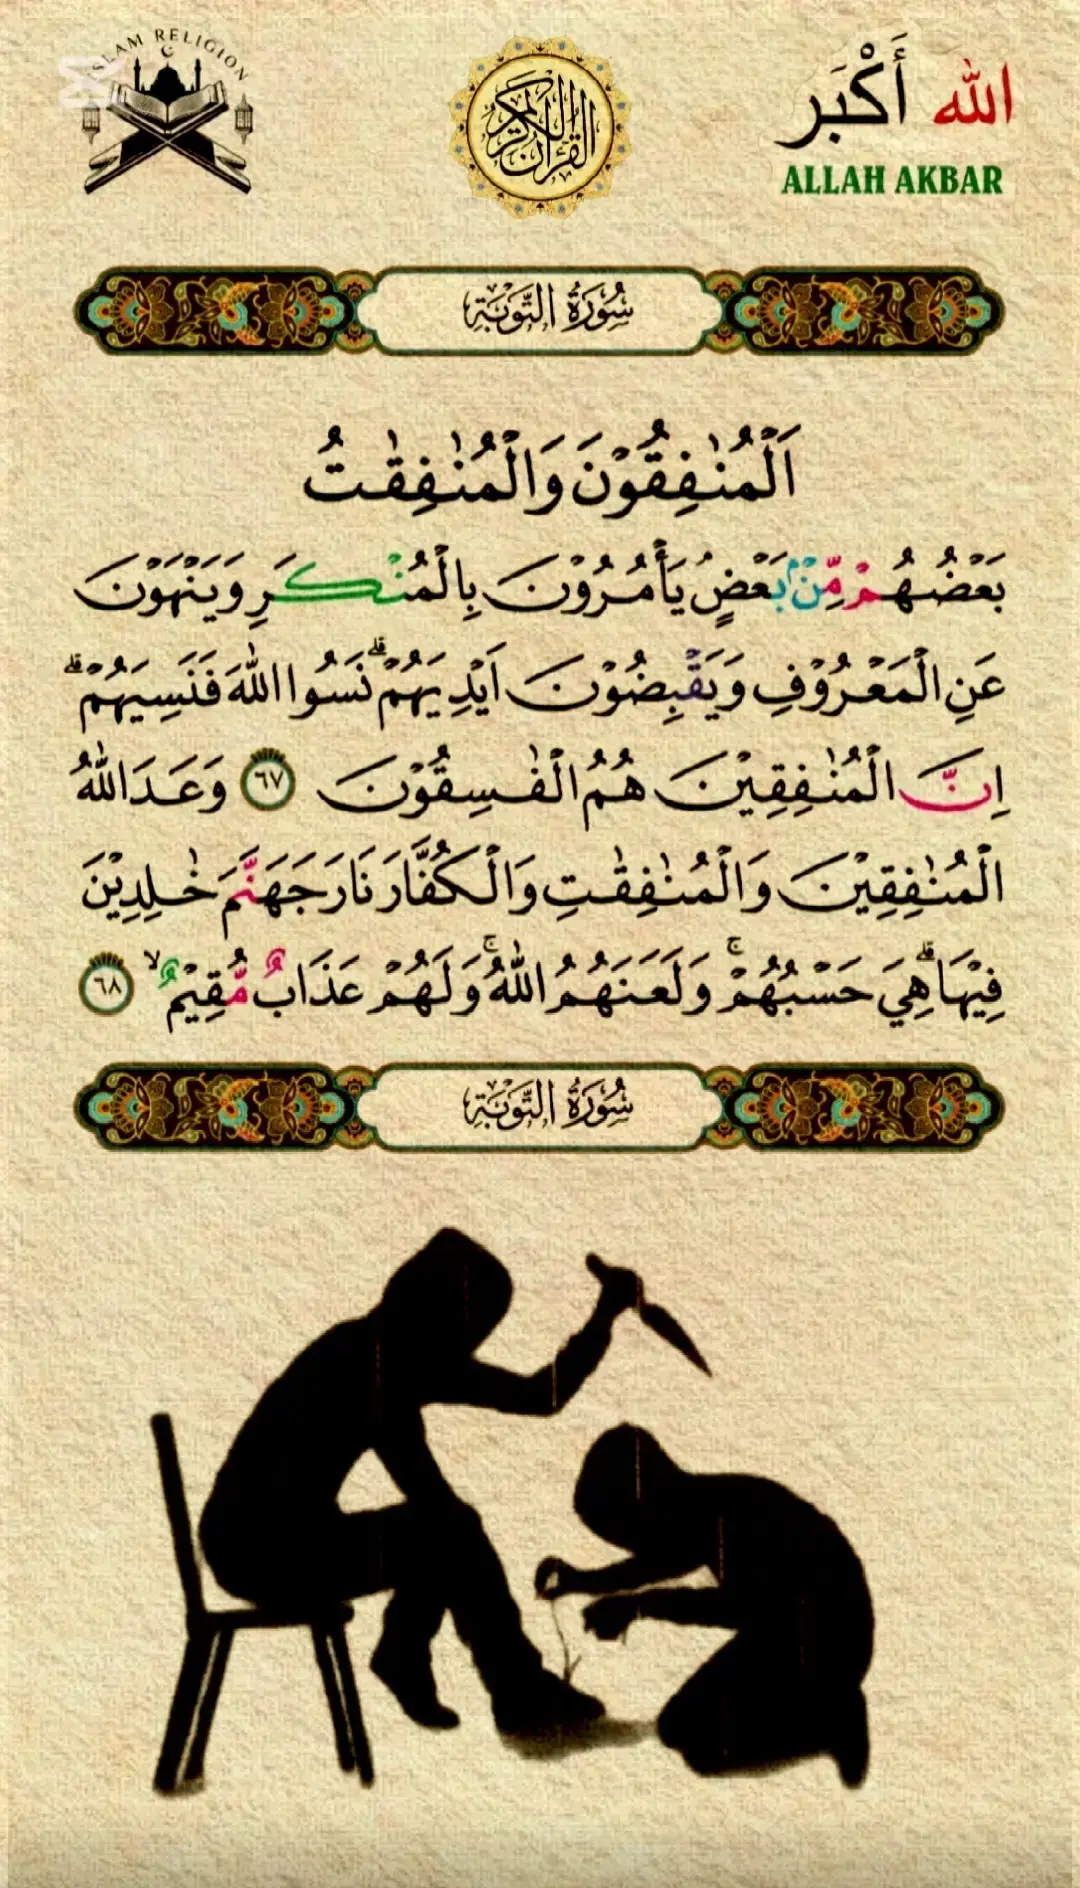 ISLAM RELIGION
القرآن الكريم
الله أَكْبَر
ALLAH AKBAR
سُورَةُ التَّوْبَةِ
اَلْمُنٰفِقُوْنَ وَالْمُنٰفِقٰتُ
بَعْضُهُمْ مِّنْۢ بَعْضٍ ۘ يَأْمُرُوْنَ بِالْمُنْكَرِ وَيَنْهَوْنَ
عَنِ الْمَعْرُوْفِ وَيَقْبِضُوْنَ اَيْدِيَهُمْ ۗ نَسُوا اللّٰهَ فَنَسِيَهُمْ ۗ
اِنَّ الْمُنٰفِقِيْنَ هُمُ الْفٰسِقُوْنَ ٦٧ وَعَدَ اللّٰهُ
الْمُنٰفِقِيْنَ وَالْمُنٰفِقٰتِ وَالْكُفَّارَ نَارَ جَهَنَّمَ خٰلِدِيْنَ
فِيْهَا ۗ هِيَ حَسْبُهُمْ ۚ وَلَعَنَهُمُ اللّٰهُ ۚ وَلَهُمْ عَذَابٌ مُّقِيْمٌ ۙ ٦٨
سُورَةُ التَّوْبَةِ